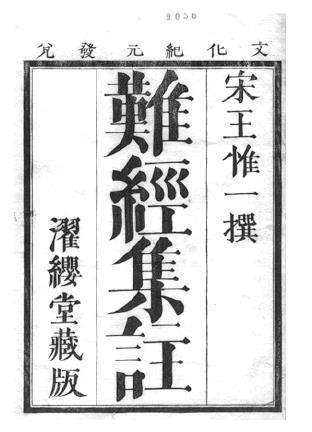 9056
文化紀元發兌
宋王惟一撰
難經集註
濯纓堂藏版